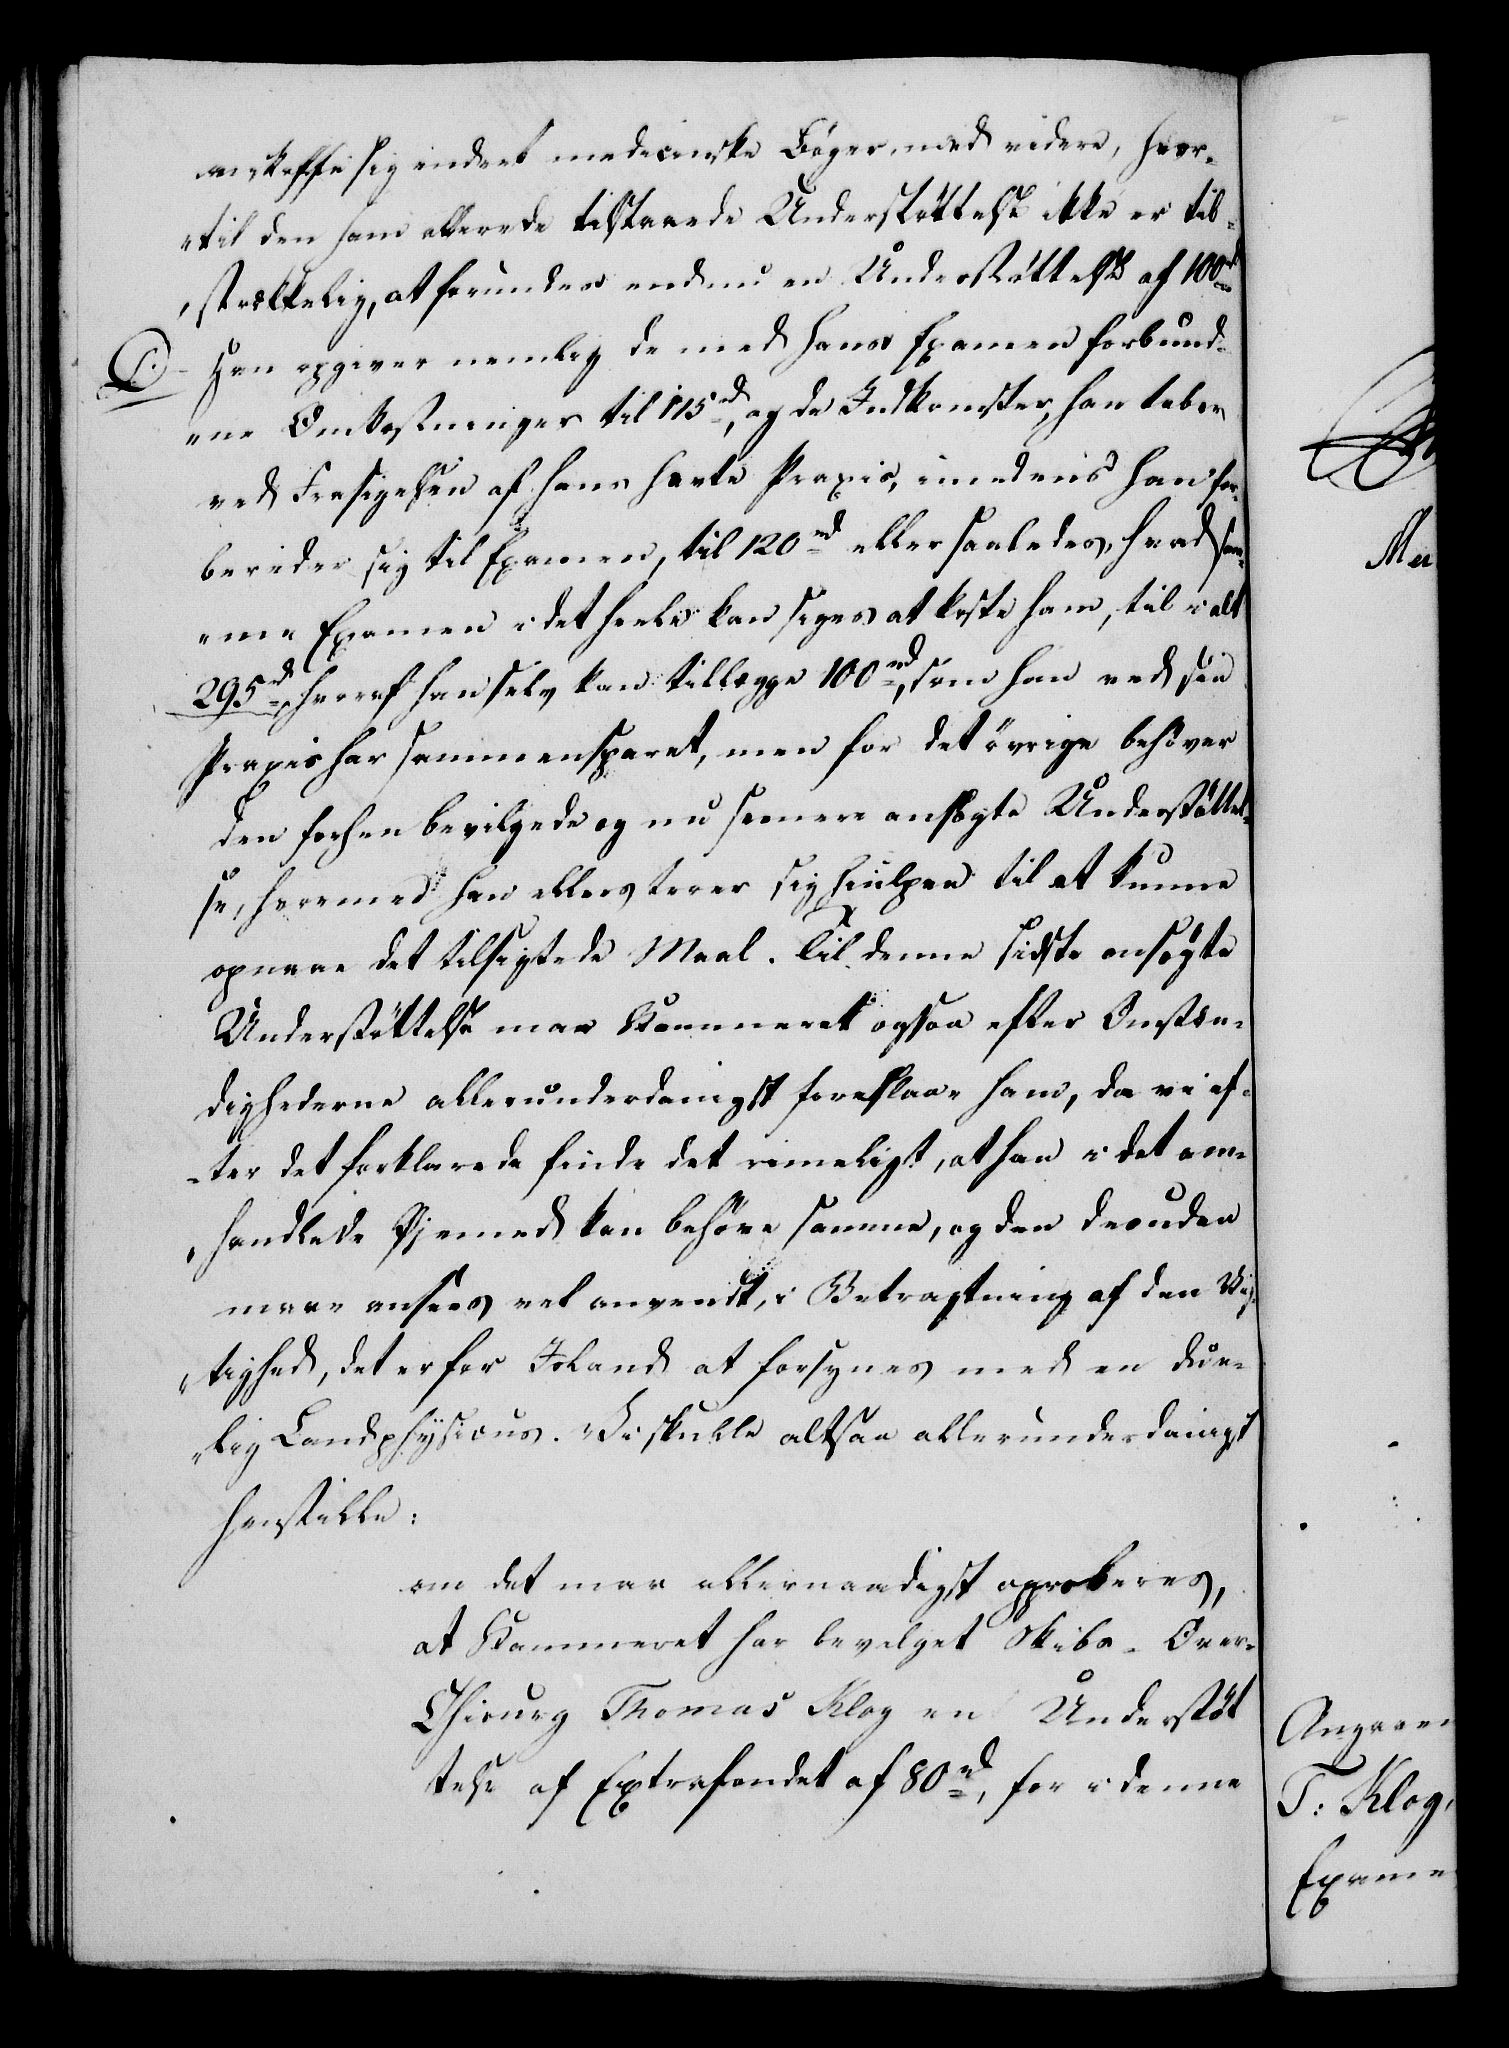 anskaffe sig endeel medicinske Bøger med videre, hvor-
"til den ham allerede tilstaaede Understöttelse ikke er til-
"strækkelig, at forundes endnu en Understøttelse af 100 rd
Han opgiver nemlig de med hans Examen forbund-
"ne Omkostninger til 175 rd, og de Indkomster, han taber
ved Frasigelsen af hans havte Praxis, imedens han for-
bereder sig til Examen, til 120 rd eller saaledes, hvad sam-
"me Examen i det heele kan siges at koste ham, til i alt
295 rd, hvoraf han selv kan tillægge 100 rd, som han ved sin
Praxis har sammensparet, men for det övrige behöver
den forhen bevilgede og nu seenere ansøgte Understøttel-
se, hvormed han ellers troer sig hiulpen til at kunne
opnaae det tilsigtede Maal. Til denne sidste ansøgte
Understøttelse maa Kammeret ogsaa efter Omstæn-
dighederne allerunderdanigst foreslaae ham, da vi ef-
"ter det forklarede finde det rimeligt, at han i det om-
"handlede Øjemed kan behöve samme, og den desuden
maae ansees vel anvendt, i Betragtning af den Vig-
"tighed, det er for Island at forsynes med en due-
"lig Landphÿsicus. Vi skulle altsaa allerunderdanigst
henstille:
om det maa allernaadigst approberes,
at Kammeret har bevilget Skibs-Over-
Chirurg Thomas Klog en Understøt
telse af Extrafondet af 80 rd, for i denne
Angaaen
T: Klog,
Exame